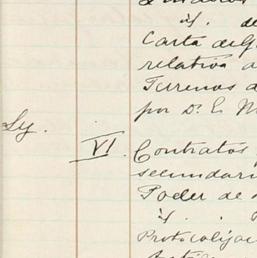 id. de
Carta de
relativa a
Terrenos d
por D. L. M
Ly.
VI. Contratos
secundari
Poder de
id.
Protocolizac